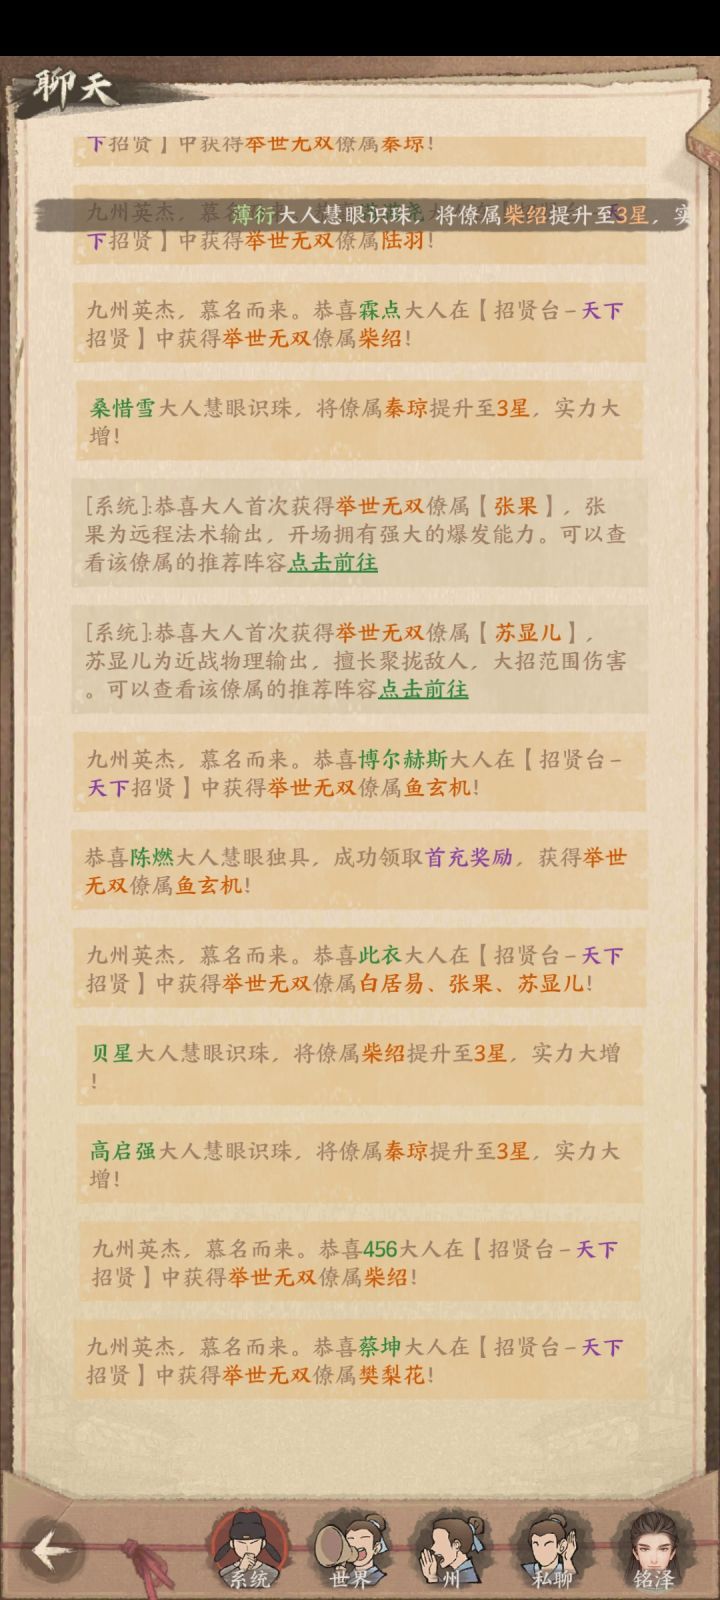 聊天
下招贤】中获得举世无双僚属秦琼!
九州英杰，慕名而来。
薄衍大人慧眼识珠，将僚属柴绍提升至3星，实
下招贤】中获得举世无双僚属陆羽!
九州英杰，慕名而来。恭喜霖点大人在【招贤台-天下
招贤】中获得举世无双僚属柴绍!
桑惜雪大人慧眼识珠，将僚属秦琼提升至3星，实力大
增!
[系统]:恭喜大人首次获得举世无双僚属【张果】，张
果为远程法术输出，开场拥有强大的爆发能力。可以查
看该僚属的推荐阵容点击前往
[系统]:恭喜大人首次获得举世无双僚属【苏显儿】，
苏显儿为近战物理输出，擅长聚拢敌人，大招范围伤害
。可以查看该僚属的推荐阵容点击前往
九州英杰，慕名而来。恭喜博尔赫斯大人在【招贤台-
天下招贤】中获得举世无双僚属鱼玄机!
恭喜陈燃大人慧眼独具，成功领取首充奖励，获得举世
无双僚属鱼玄机!
九州英杰，慕名而来。恭喜此衣大人在【招贤台-天下
招贤】中获得举世无双僚属白居易、张果、苏显儿!
贝星大人慧眼识珠，将僚属柴绍提升至3星，实力大增
!
高启强大人慧眼识珠，将僚属秦琼提升至3星，实力大
增!
九州英杰，慕名而来。恭喜456大人在【招贤台-天下
招贤】中获得举世无双僚属柴绍!
九州英杰，慕名而来。恭喜蔡坤大人在【招贤台-天下
招贤】中获得举世无双僚属樊梨花!
系统 世界 州 私聊 铭泽